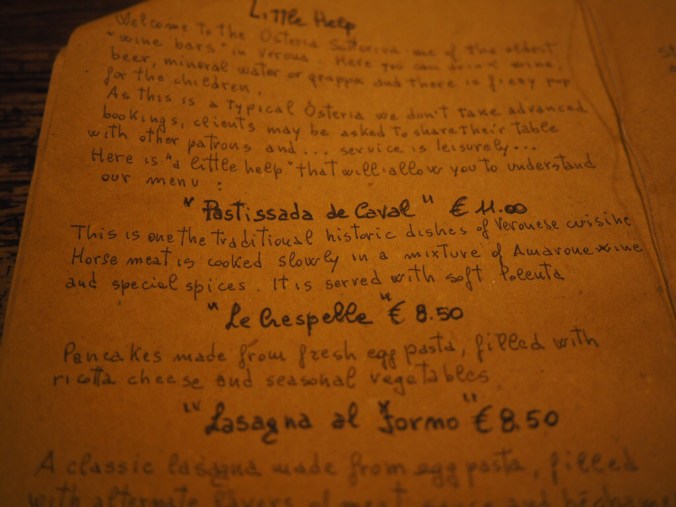 Little Help
Welcome to the Osteria Sottoriva one of the oldest
"wine bars" in Verona. Here you can drink wine,
beer, mineral water or grappa and there is fizzy pop
for the children.
As this is a typical Osteria we don't take advanced
bookings, clients may be asked to share their table
with other patrons and... service is leisurely...
Here is "a little help" that will allow you to understand
our menu :
"Pastissada de Caval" € 11.00
This is one the traditional historic dishes of Veronese cuisine
Horse meat is cooked slowly in a mixture of Amarone wine
and special spices. It is served with soft Polenta
"Le Crespelle" € 8.50
Pancakes made from fresh egg pasta, filled with
ricotta cheese and seasonal vegetables
"Lasagna al Formo" € 8.50
A classic lasagna made from egg pasta, filled
with alternate layers of meat sauce and béchame